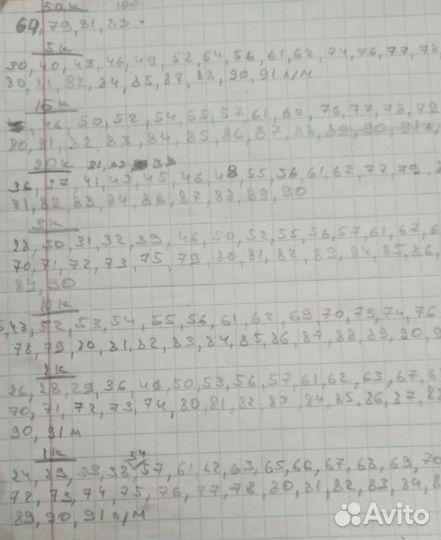 50 к 100
69, 79, 81, 83.
5 к
30, 40, 43, 46, 49, 52, 54, 56, 61, 62, 74, 76, 77, 78
80, 81, 82, 84, 85, 87, 88, 90, 91 л/м
15 к
46, 50, 52, 54, 55, 57, 61, 62, 76, 77, 78, 79
80, 81, 82, 83, 84, 85, 86, 87, 88, 89, 90, 91 л/
20 к 81, 82, 83
36, 37, 41, 43, 45, 46, 48, 55, 56, 61, 62, 77, 79,
81, 82, 83, 84, 86, 87, 88, 89, 90
3 к
28, 30, 31, 32, 39, 46, 50, 52, 55, 56, 57, 61, 67, 6
70, 71, 72, 73, 75, 79, 80, 81, 82, 83, 84, 85, 86,
89, 90
10 к
43, 52, 53, 54, 55, 56, 61, 62, 69, 70, 73, 74, 76
78, 79, 80, 81, 82, 83, 84, 85, 86, 87, 88, 89, 90, 9
2 к
26, 28, 29, 36, 49, 50, 53, 56, 57, 61, 62, 63, 67, 6
70, 71, 72, 73, 74, 80, 81, 82, 83, 84, 85, 86, 87, 88
90, 91 м
1 к 54
24, 29, 38, 57, 61, 62, 63, 65, 66, 67, 68, 69, 70
72, 73, 74, 75, 76, 77, 78, 80, 81, 82, 83, 84, 8
89, 90, 91 л/м
Avito